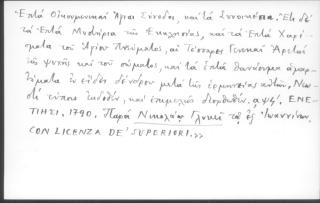 Ἑπτὰ Οἰκουμενικαὶ Ἅγιαι Σύνοδοι, καὶ τὰ Συνοικέσια. Ἔτι δὲ
τὰ Ἑπτὰ Μυστήρια τῆς Ἐκκλησίας, καὶ τὰ Ἑπτὰ Χαρί-
σματα τοῦ Ἁγίου Πνεύματος, αἱ Τέσσαρες Γενικαὶ Ἀρεταὶ
τῆς ψυχῆς καὶ τοῦ σώματος, καὶ τὰ ἑπτὰ θανάσιμα ἁμαρ-
τήματα ἐν εἴδει δένδρου μετὰ τῆς ἑρμηνείας αὐτῶν. Νεω-
στὶ τύποις ἐκδοθέν, καὶ ἐπιμελῶς διορθωθέν. ͵αψϟʹ. ΕΝΕ-
ΤΙΗΣΙ, 1790. Παρὰ Νικολάῳ Γλυκεῖ τῷ ἐξ Ἰωαννίνων.
CON LICENZA DE' SUPERIORI.>>